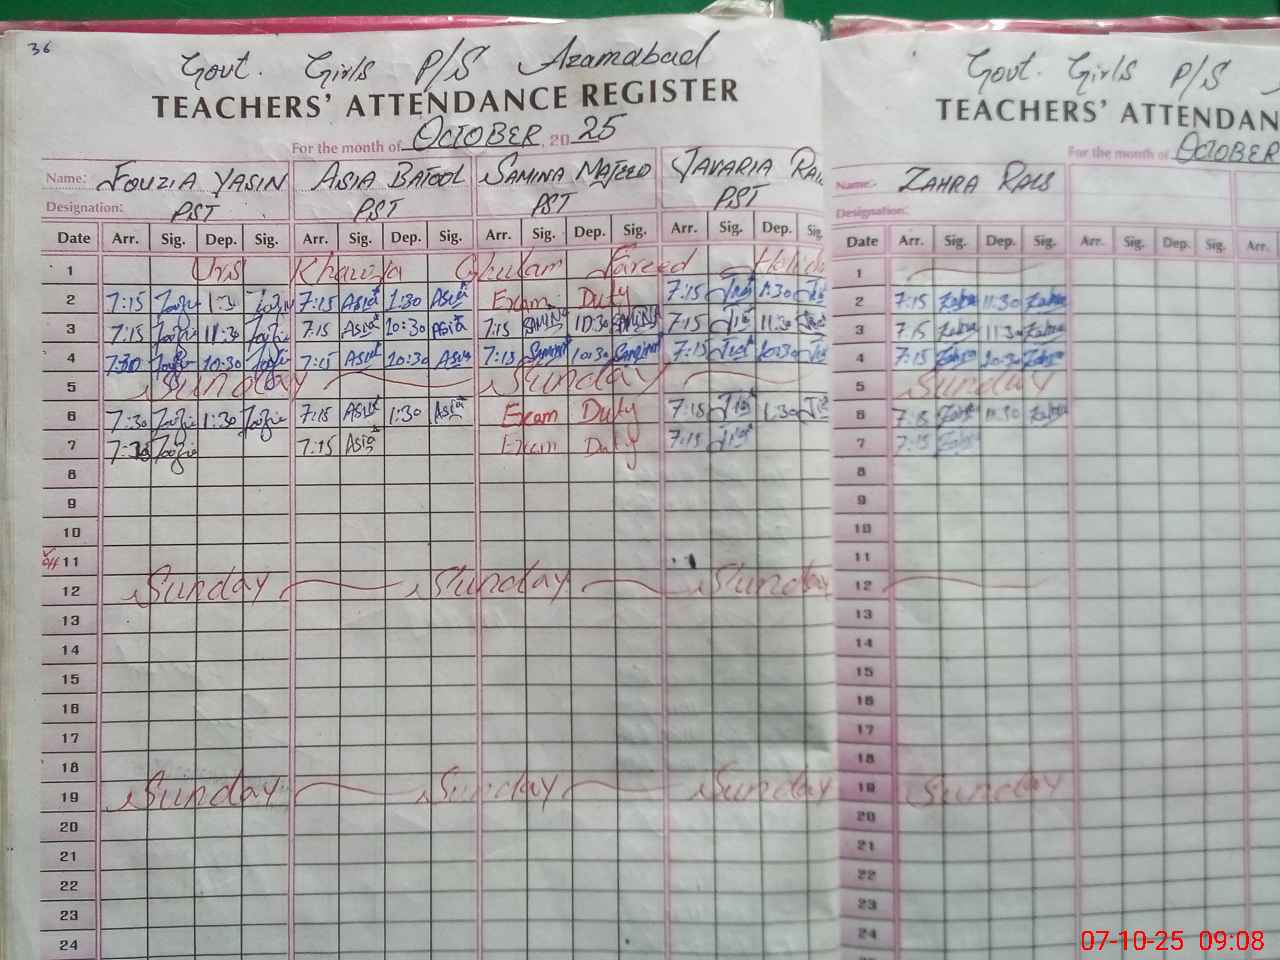 36
Govt. Girls P/S Azamabad
TEACHERS' ATTENDANCE REGISTER
For the month of OCTOBER, 2025
Name: FOUZIA YASIN ASIA BATOOL SAMINA MAJEED JAVARIA
Designation: PST PST PST PST
Date Arr. Sig. Dep. Sig. Arr. Sig. Dep. Sig. Arr. Sig. Dep. Sig. Arr. Sig. Dep. Sig.
1 Urs Khawaja Ghulam Fareed
2 7:15 1:3 7:15 Asia 1:30 Asia Exam Duty 7:15 1:30
3 7:15 11:30 7:15 Asia 10:30 Asia 7:15 SAMINA 10:30 SAMINA 7:15 11:30
4 7:30 10:30 7:15 Asia 10:30 Asia 7:15 10:30 7:15 10:30
5 Sunday Sunday
6 7:30 1:30 7:15 Asia 1:30 Asia Exam Duty 7:15 1:30
7 7:15 Asia Exam Duty 7:15
8
9
10
off 11
12 Sunday Sunday Sunday
13
14
15
16
17
18
19 Sunday Sunday Sunday
20
21
22
23
24
Govt. Girls P/S
TEACHERS' ATTENDAN
For the month of OCTOBER
Name: ZAHRA RAIS
Designation:
Date Arr. Sig. Dep. Sig. Arr. Sig. Dep. Sig. Arr.
1
2 7:15 Zahra 11:30 Zahra
3 7:15 Zahra 11:30 Zahra
4 7:15 Zahra 10:30 Zahra
5 Sunday
6 7:15 Zahra 11:30 Zahra
7 7:15 Zahra
8
9
10
11
12
13
14
15
16
17
18
19 Sunday
20
21
22
23
24
07-10-25 09:08